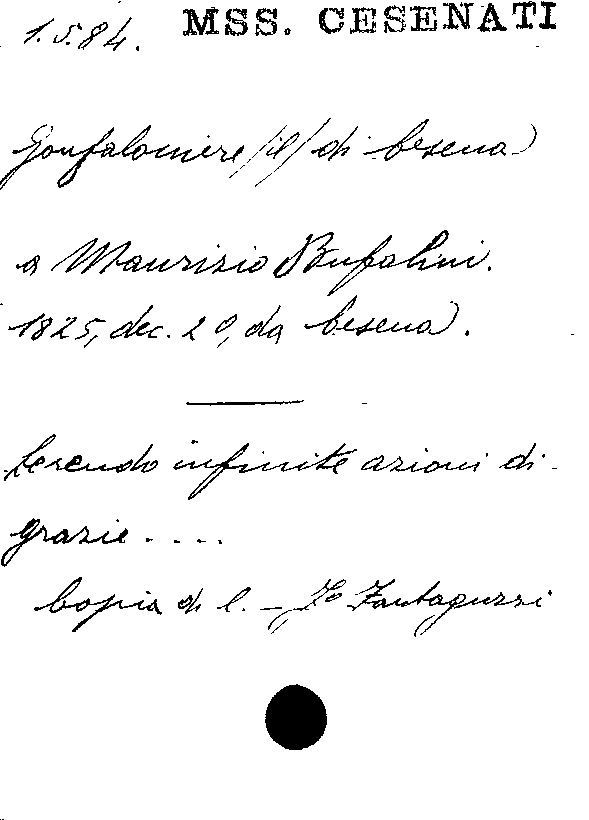 1.5.84. MSS. CESENATI
Gonfaloniere /il/ di Cesena
a Maurizio Bufalini.
1825, dec. 20, da Cesena.
infinite azioni di
grazie....
Copia di l. - Fantaguzzi